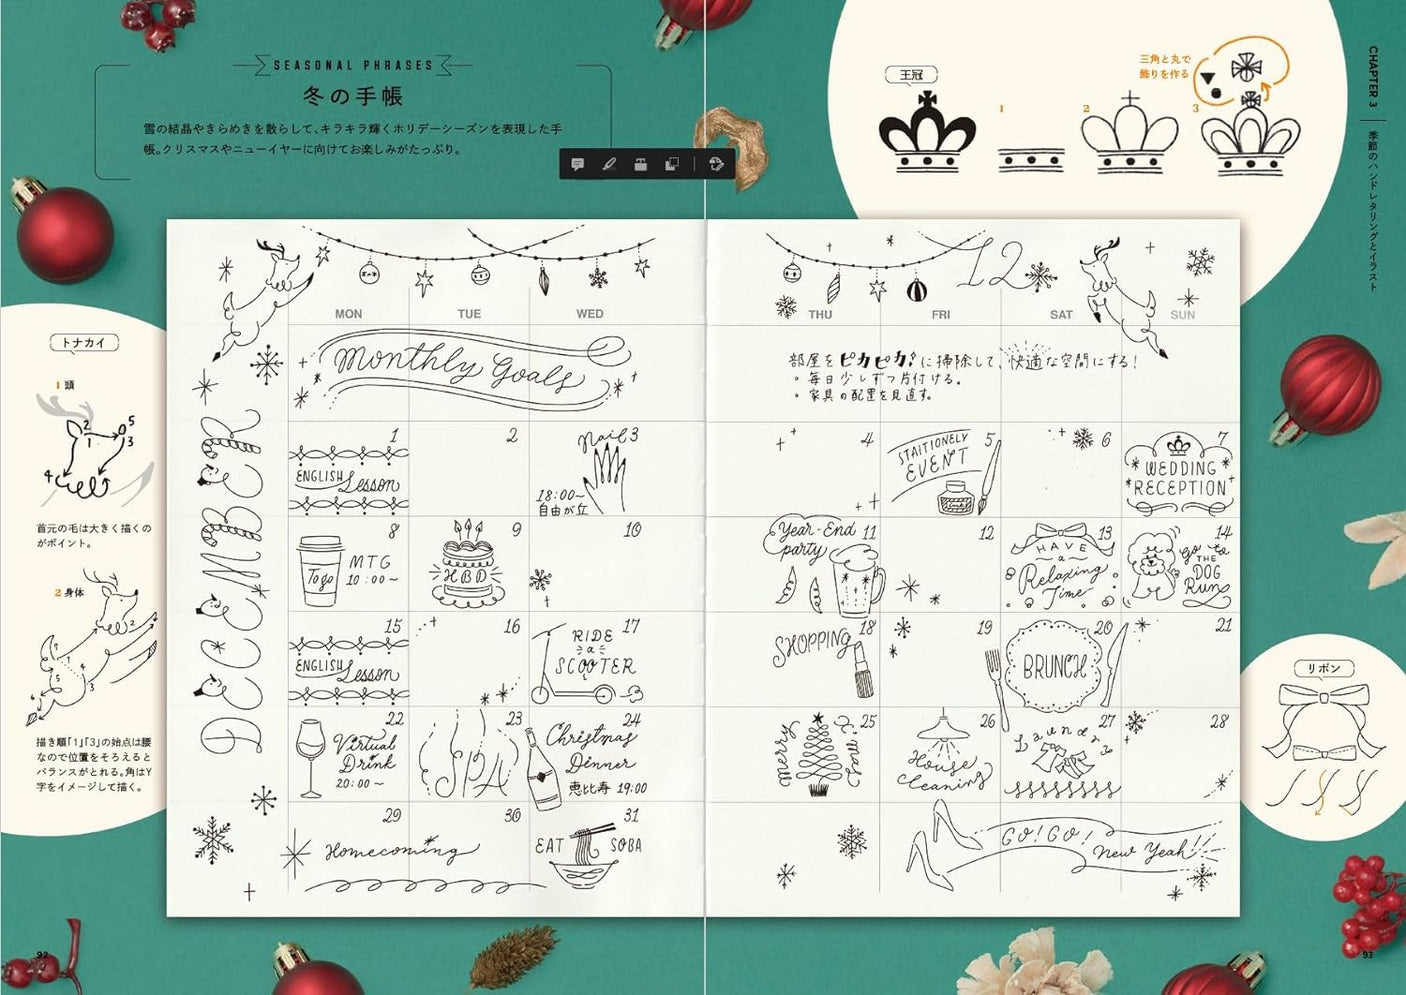 SEASONAL PHRASES
冬の手帳
雪の結晶やきらめきを散らして、キラキラ輝くホリデーシーズンを表現した手
帳。クリスマスやニューイヤーに向けてお楽しみがたっぷり。
王冠
三角と丸で
飾りを作る
1
2
3
CHAPTER 3
季節のハンドレタリングとイラスト
トナカイ
1 頭
1
2
3
4
5
首元の毛は大きく描くの
がポイント。
2 身体
描き順「1」「3」の始点は腰
なので位置をそろえると
バランスがとれる。角はY
字をイメージして描く。
リボン
12
DECEMBER
MON TUE WED THU FRI SAT SUN
Monthly Goals
部屋をピカピカ!に掃除して、快適な空間にする!
・毎日少しずつ片付ける。
・家具の配置を見直す。
1
ENGLISH Lesson
2
3
nail
18:00~
自由が丘
4
5
STAITIONELY
EVENT
6
7
WEDDING
RECEPTION
8
To go
MTG
10:00~
9
HBD
10
11
Year-End
party
12
13
HAVE
a
Relaxing
Time
14
go to
THE
DOG
Run
15
ENGLISH Lesson
16
17
RIDE
a
SCOOTER
18
SHOPPING
19
20
BRUNCH
21
22
Virtual
Drink
20:00~
23
SPA
24
Christmas
Dinner
恵比寿 19:00
25
merry
X'mas
26
House
Cleaning
27
Laundry
28
29
30
31
Homecoming
EAT SOBA
GO! GO! New Yeah!!
92
93